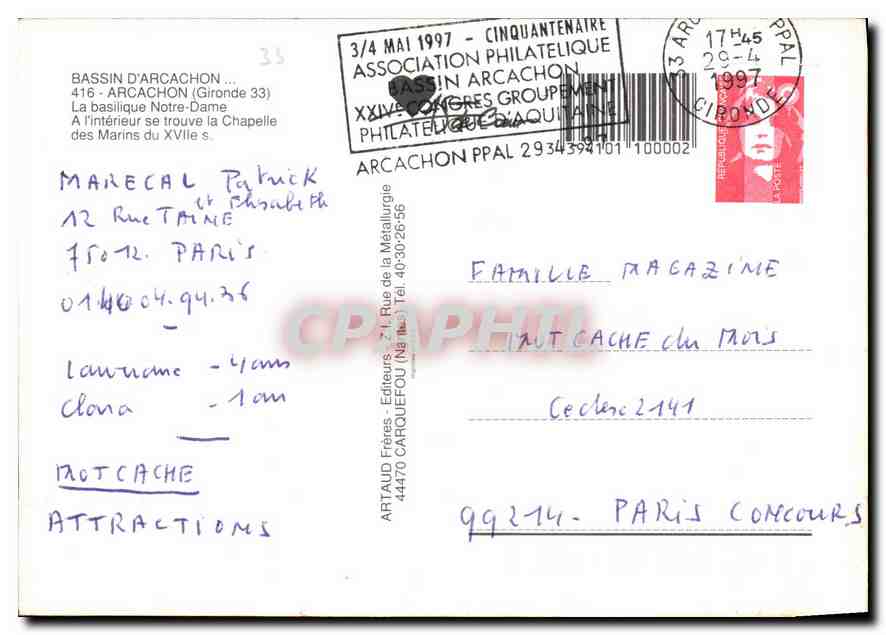 33
BASSIN D'ARCACHON ...
416 - ARCACHON (Gironde 33)
La basilique Notre-Dame
A l'intérieur se trouve la Chapelle
des Marins du XVIIe s.
3/4 MAI 1997 - CINQUANTENAIRE
ASSOCIATION PHILATELIQUE
BASSIN ARCACHON
XXIVe CONGRES GROUPEMENT
PHILATELIQUE D'AQUITAINE
ARCACHON PPAL 29 4 97
34394101 100002
33 ARCACHON PPAL
17H45
29-4
1997
GIRONDE
REPUBLIQUE FRANCAISE
LA POSTE
MARECAL Patrick
et Elisabeth
12 Rue TAINE
75012. PARIS
01 40 04.94.36
Lauriane - 4 ans
Clara - 1 an
MOT CACHE
ATTRACTIONS
ARTAUD Frères - Editeurs - Z.I. Rue de la Métallurgie
44470 CARQUEFOU (Nantes) Tél. 40-30-26-56
CPAPHIL
FAMILLE MAGAZINE
MOT CACHE du MOIS
Cedex 2141
99214 - PARIS CONCOURS